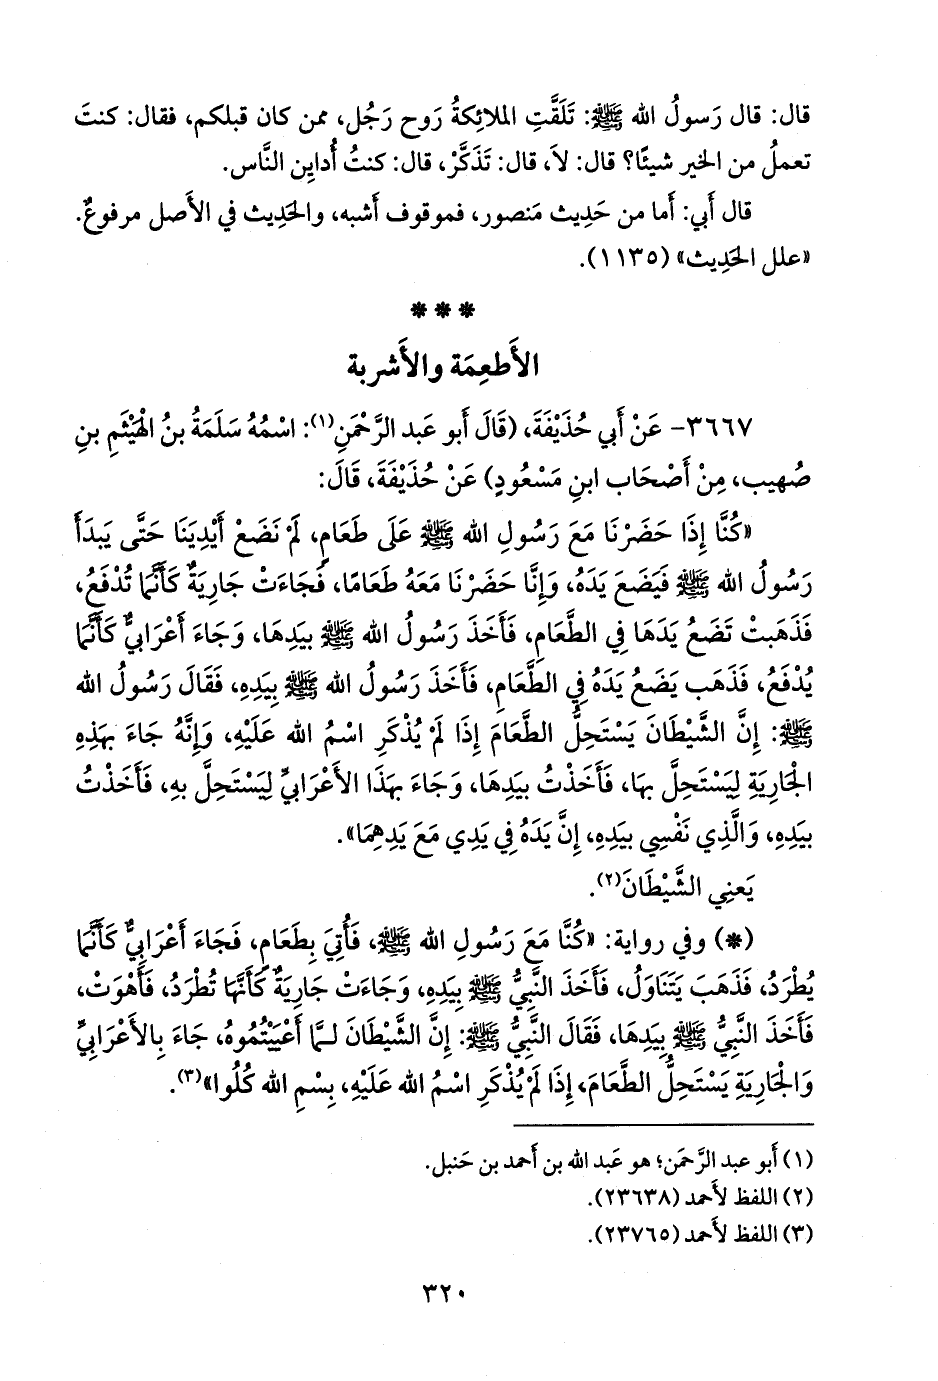 قال: قال رَسولُ الله ﷺ: تَلَقَّتِ الملائِكةُ رَوح رَجُل، ممن كان قبلكم، فقال: كنتَ
تعملُ من الخير شيئًا؟ قال: لاَ، قال: تَذَكَّرْ، قال: كنتُ أُداين النَّاس.
قال أَبي: أَما من حَدِيث مَنصور، فموقوف أَشبه، والحَدِيث في الأَصل مرفوعٌ.
«علل الحَدِيث» (١١٣٥).
* * *
الأَطعِمَة والأَشربة
٣٦٦٧- عَنْ أَبي حُذَيْفَةَ، (قَالَ أَبو عَبد الرَّحْمَنِ(١): اسْمُهُ سَلَمَةُ بنُ الهَيْثَمِ بنِ
صُهيب، مِنْ أَصْحَاب ابنِ مَسْعُودٍ) عَنْ حُذَيْفَةَ، قَالَ:
«كُنَّا إِذَا حَضَرْنَا مَعَ رَسُولِ الله ﷺ عَلَى طَعَامٍ، لَمْ نَضَعْ أَيْدِيَنَا حَتَّى يَبدَأَ
رَسُولُ الله ﷺ فَيَضَعَ يَدَهُ، وَإِنَّا حَضَرْنَا مَعَهُ طَعَامًا، فَجَاءَتْ جَارِيَةٌ كَأَنَّمَا تُدْفَعُ،
فَذَهَبتْ تَضَعُ يَدَهَا فِي الطَّعَامِ، فَأَخَذَ رَسُولُ الله ﷺ بيَدِهَا، وَجَاءَ أَعْرَابيٌّ كَأَنَّمَا
يُدْفَعُ، فَذَهَب يَضَعُ يَدَهُ فِي الطَّعَامِ، فَأَخَذَ رَسُولُ الله ﷺ بِيَدِهِ، فَقَالَ رَسُولُ الله
ﷺ: إِنَّ الشَّيْطَانَ يَسْتَحِلُّ الطَّعَامَ إِذَا لَمْ يُذْكَرِ اسْمُ الله عَلَيْهِ، وَإِنَّهُ جَاءَ بهَذِهِ
الجَارِيَةِ لِيَسْتَحِلَّ بهَا، فَأَخَذْتُ بيَدِهَا، وَجَاءَ بهَذَا الأَعْرَابيِّ لِيَسْتَحِلَّ بهِ، فَأَخَذْتُ
بيَدِهِ، وَالَّذِي نَفْسِي بيَدِهِ، إِنَّ يَدَهُ فِي يَدِي مَعَ يَدِهِمَا».
يَعنِي الشَّيْطَانَ(٢).
(*) وفي رواية: «كُنَّا مَعَ رَسُولِ الله ﷺ، فَأُتِيَ بِطَعَامٍ، فَجَاءَ أَعْرَابيٌّ كَأَنَّمَا
يُطْرَدُ، فَذَهَبَ يَتَنَاوَلُ، فَأَخَذَ النَّبيُّ ﷺ بيَدِهِ، وَجَاءَتْ جَارِيَةٌ كَأَنَّهَا تُطْرَدُ، فَأَهْوَتْ،
فَأَخَذَ النَّبيُّ ﷺ بِيَدِهَا، فَقَالَ النَّبيُّ ﷺ: إِنَّ الشَّيْطَانَ لَـمَّا أَعْيَيْتُمُوهُ، جَاءَ بِالأَعْرَابيِّ
وَالجَارِيَةِ يَسْتَحِلُّ الطَّعَامَ، إِذَا لَمْ يُذْكَرِ اسْمُ الله عَلَيْهِ، بِسْمِ الله كُلُوا»(٣).
(١) أَبو عبد الرَّحمَن؛ هو عَبد الله بن أَحمد بن حَنبل.
(٢) اللفظ لأَحمد (٢٣٦٣٨).
(٣) اللفظ لأَحمد (٢٣٧٦٥).
٣٢٠